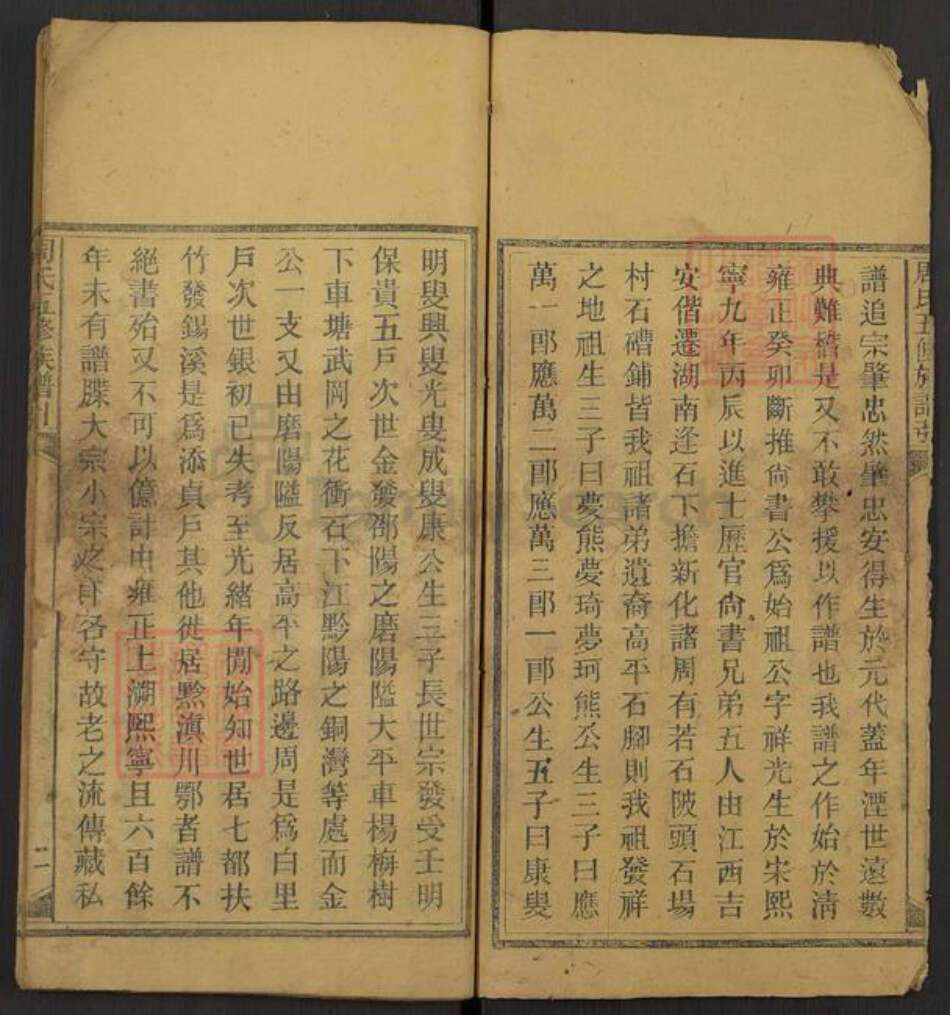 譜追宗肇忠然肇忠安得生於元代蓋年湮世遠數
典難稽是又不敢攀援以作譜也我譜之作始於淸
雍正癸卯斷推尙書公爲始祖公字祥光生於宋熙
寧九年丙辰以進士歷官尙書兄弟五人由江西吉
安偕遷湖南逢石下擔新化諸周有若石陂頭石場
村石磳鋪皆我祖諸弟遺裔高平石腳則我祖發祥
之地祖生三子曰夢熊夢琦夢珂熊公生三子曰應
萬一郎應萬二郎應萬三郎一郎公生五子曰康叟
明叟興叟光叟成叟康公生三子長世宗發受壬明
保貴五戶次世金發邵陽之磨陽隘大平車楊梅樹
下車塘武岡之花衝石下江黔陽之銅灣等處而金
公一支又由磨陽隘反居高平之路邊周是爲白里
戶次世銀初已失考至光緒年閒始知世居七都扶
竹發錫溪是爲添貞戶其他徙居黔滇川鄂者譜不
絕書殆又不可以億計由雍正上溯熙寧且六百餘
年未有譜牒大宗小宗之詳各守故老之流傳藏私
周氏五修族譜引
二